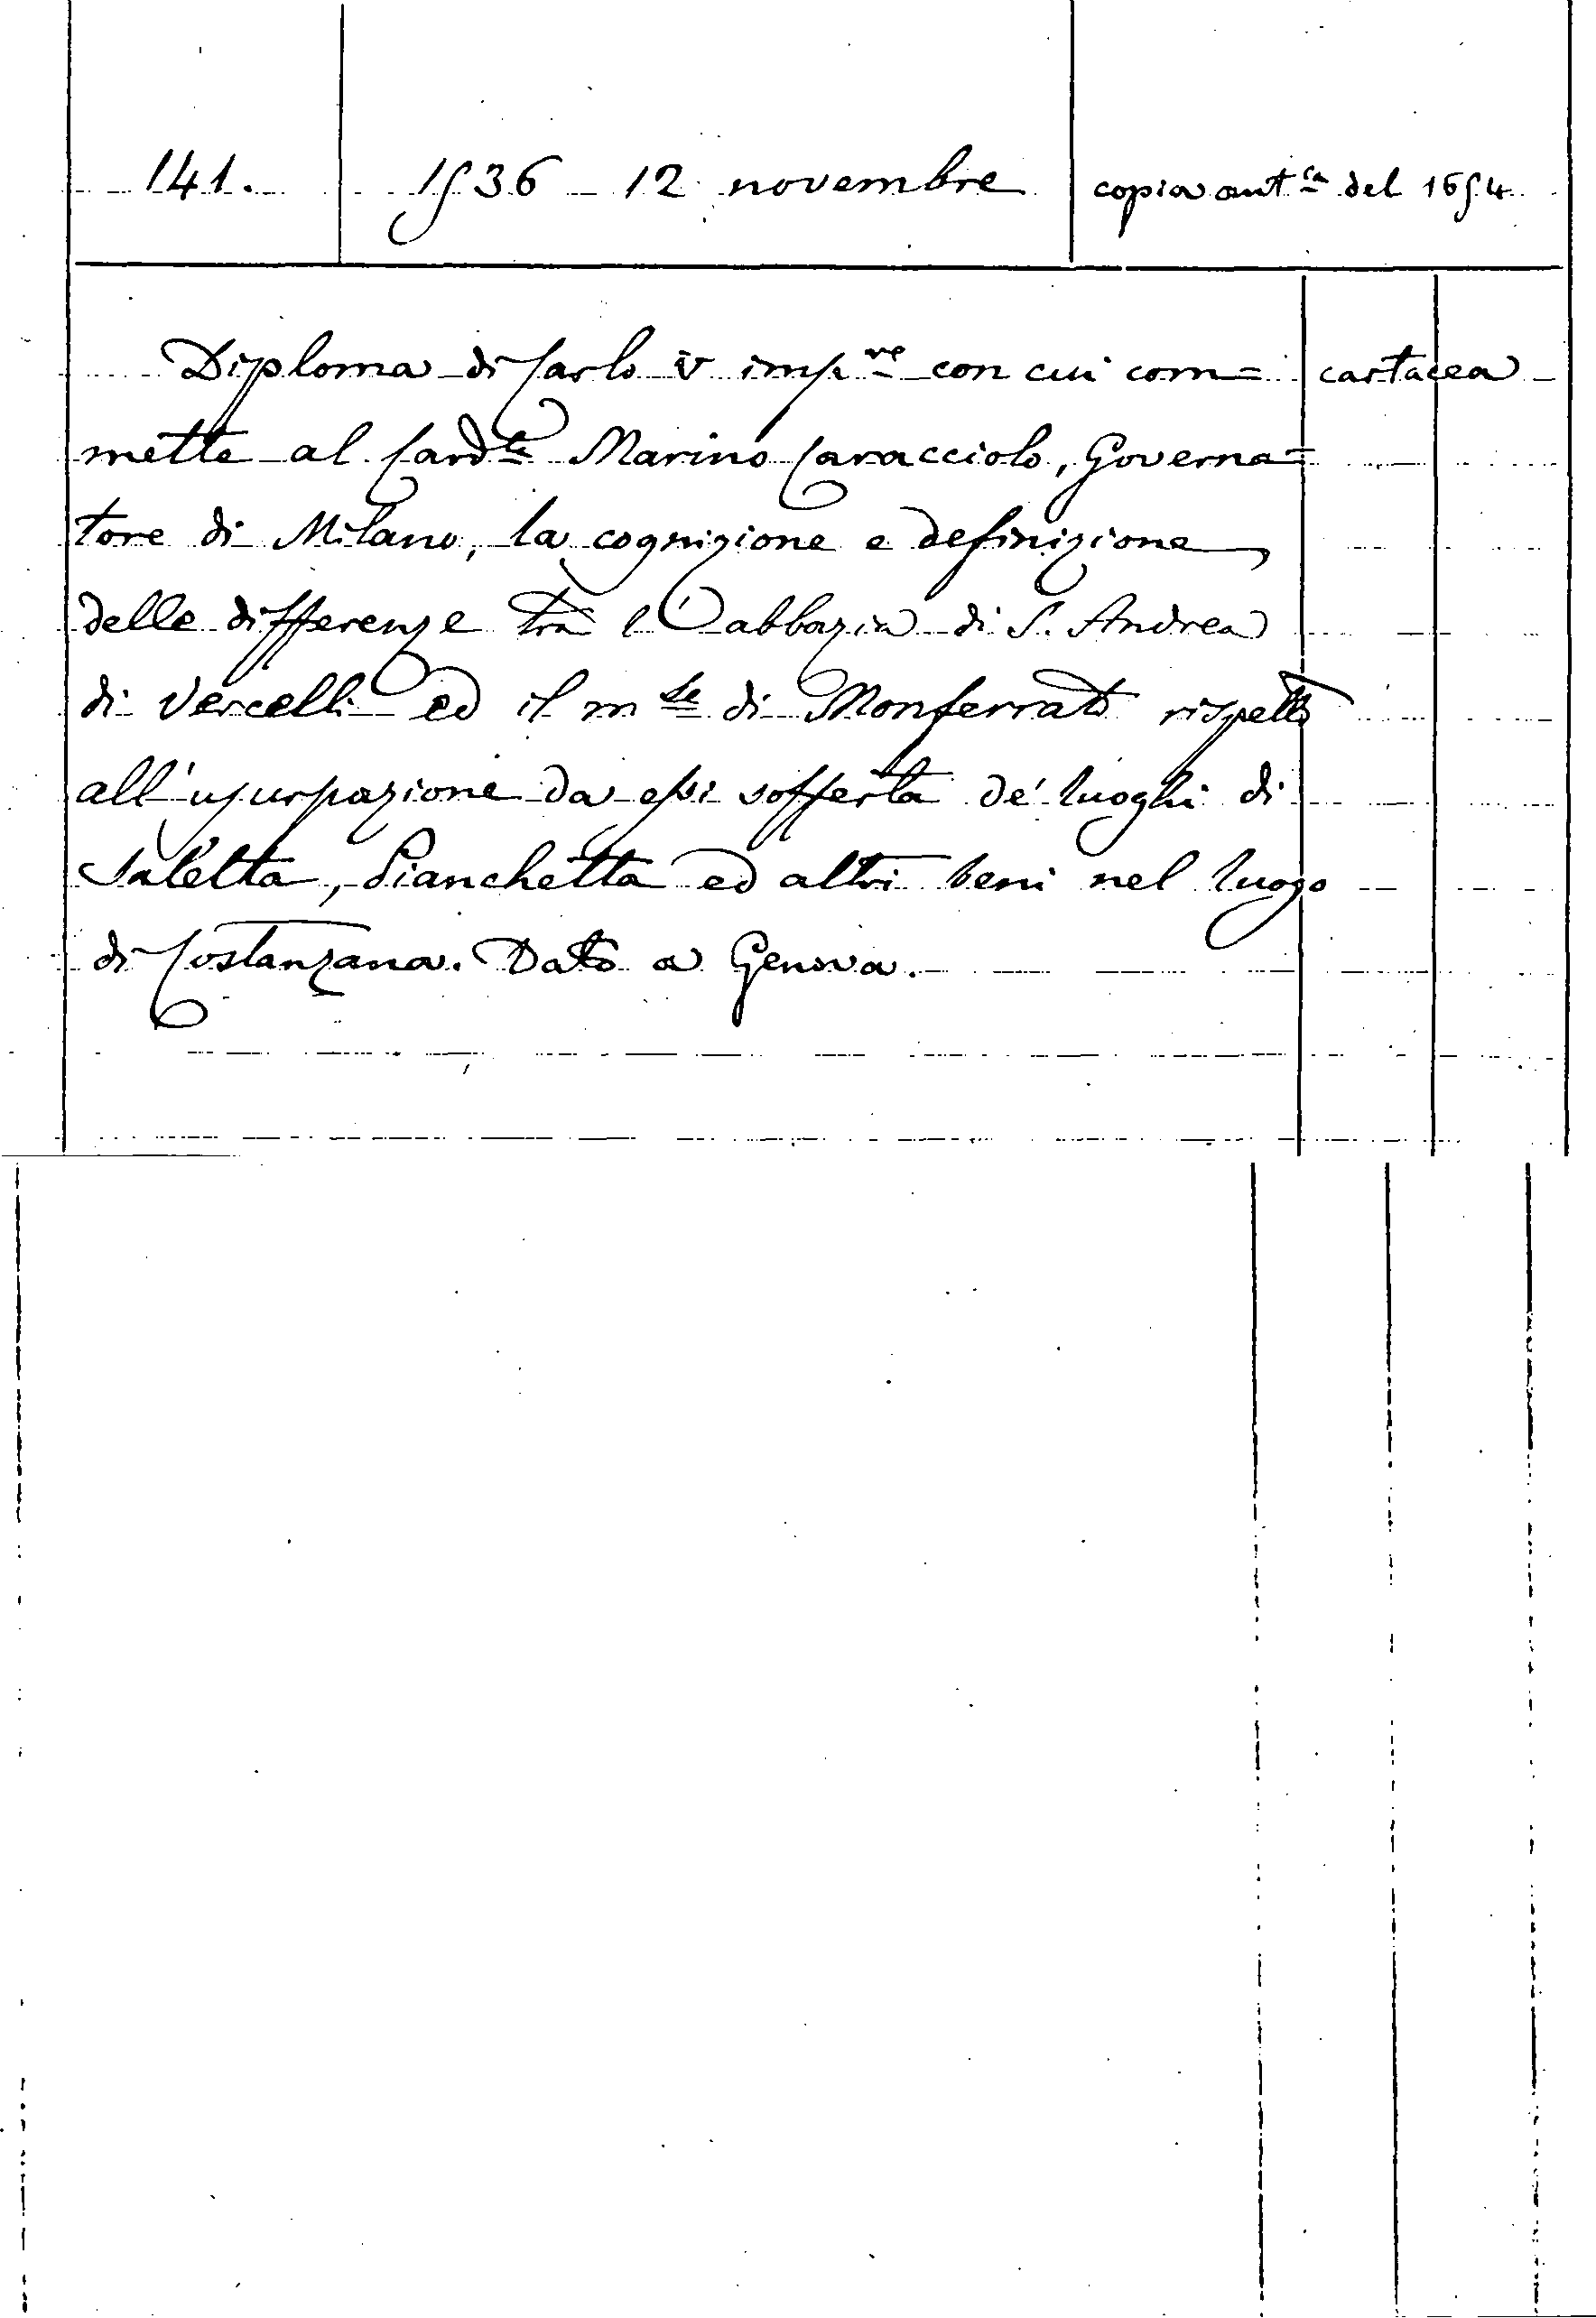 141. 1536 12 novembre copia aut.ca del 1654
Diploma di Carlo V imp.re con cui com= cartacea
mette al Card.le Marino Caracciolo, Governa=
tore di Milano, la cognizione e definizione
delle differenze tra l'abbazia di S. Andrea
di Vercelli ed il m.se di Monferrato rispetto
all'usurpazione da essi sofferta de' luoghi di
Saletta, Pianchetta ed altri beni nel luogo
di Costanzana. Dato a Genova.